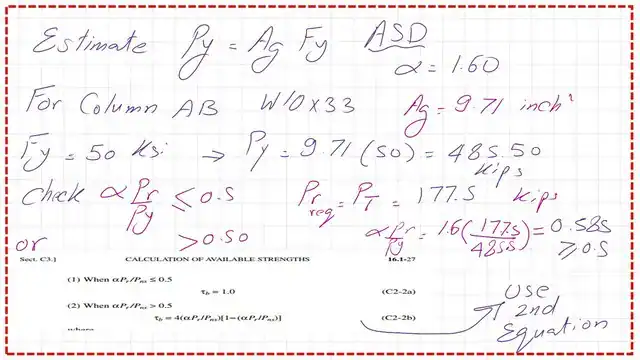 Estimate Py = Ag Fy ASD
α = 1.60
For Column AB W10x33 Ag = 9.71 inch²
Fy = 50 Ksi → Py = 9.71 (50) = 485.50 Kips
Check α Pr/Py ≤ 0.5 Pr req = PT = 177.5 Kips
or > 0.50 α Pr/Py = 1.6 (177.5/485.5) = 0.585 ≥ 0.5
Sect. C3.] CALCULATION OF AVAILABLE STRENGTHS 16.1-27
(1) When αPr/Pns ≤ 0.5
τb = 1.0 (C2-2a)
(2) When αPr/Pns > 0.5
τb = 4(αPr/Pns)[1−(αPr/Pns)] (C2-2b)
where
Use
2nd
Equation